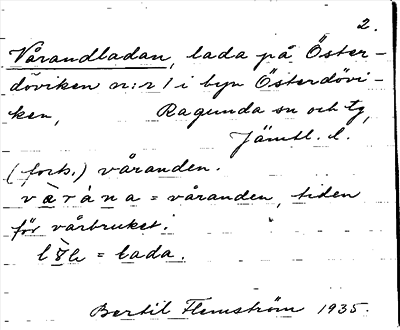 2.
Vårandladan, lada på Öster-
döviken n:r 1 i byn Österdövi-
ken, Ragunda sn och tg,
Jämtl. l.
(forts.) våranden.
v æ̀ r á n a = våranden, tiden
för vårbruket.
= lada.
Bertil Flemström 1935.